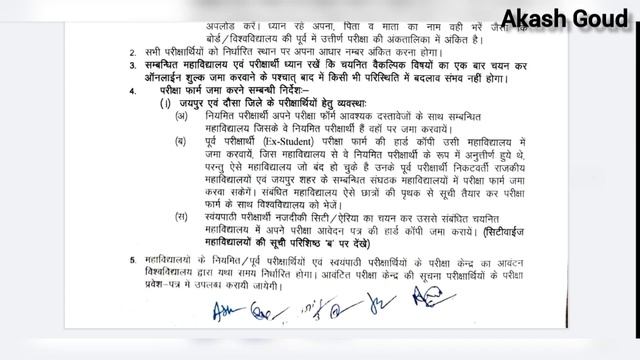 Akash Goud
अपलोड करें। ध्यान रहे अपना, पिता व माता का नाम वही भरें जैसा कि
बोर्ड/विश्वविद्यालय की पूर्व में उत्तीर्ण परीक्षा की अंकतालिका में अंकित है।
2. सभी परीक्षार्थियों को निर्धारित स्थान पर अपना आधार नम्बर अंकित करना होगा।
3. सम्बन्धित महाविद्यालय एवं परीक्षार्थी ध्यान रखें कि चयनित वैकल्पिक विषयों का एक बार चयन कर
ऑनलाईन शुल्क जमा करवाने के पश्चात् बाद में किसी भी परिस्थिति में बदलाव संभव नहीं होगा।
4. परीक्षा फार्म जमा करने सम्बन्धी निर्देशः–
(।) जयपुर एवं दौसा जिले के परीक्षार्थियों हेतु व्यवस्थाः
(अ) नियमित परीक्षार्थी अपने परीक्षा फॉर्म आवश्यक दस्तावेजों के साथ सम्बन्धित
महाविद्यालय जिसके वे नियमित परीक्षार्थी हैं वहाँ पर जमा करवायें।
(ब) पूर्व परीक्षार्थी (Ex-Student) परीक्षा फार्म की हार्ड कॉपी उसी महाविद्यालय में
जमा करवायें, जिस महाविद्यालय से वे नियमित परीक्षार्थी के रूप में अनुत्तीर्ण हुये थे,
परन्तु ऐसे महाविद्यालय जो बंद हो चुके है उनके पूर्व परीक्षार्थी निकटवर्ती राजकीय
महाविद्यालयों एवं जयपुर शहर के सम्बन्धित संघठक महाविद्यालयों में परीक्षा फार्म जमा
करवा सकेगें। संबंधित महाविद्यालय ऐसे छात्रों की पृथक से सूची तैयार कर परीक्षा
फार्म के साथ विश्वविद्यालय को भेजें।
(स) स्वंयपाठी परीक्षार्थी नजदीकी सिटी/ऐरिया का चयन कर उससे संबंधित चयनित
महाविद्यालय में अपने परीक्षा आवेदन पत्र की हार्ड कॉपी जमा करायें। (सिटीवाईज
महाविद्यालयों की सूची परिशिष्ठ 'ब' पर देखें)
5. महाविद्यालयों के नियमित/पूर्व परीक्षार्थियों एवं स्वयंपाठी परीक्षार्थियों के परीक्षा केन्द्र का आवंटन
विश्वविद्यालय द्वारा यथा समय निर्धारित होगा। आवंटित परीक्षा केन्द्र की सूचना परीक्षार्थियों के परीक्षा
प्रवेश-पत्र में उपलब्ध करायी जायेगी।